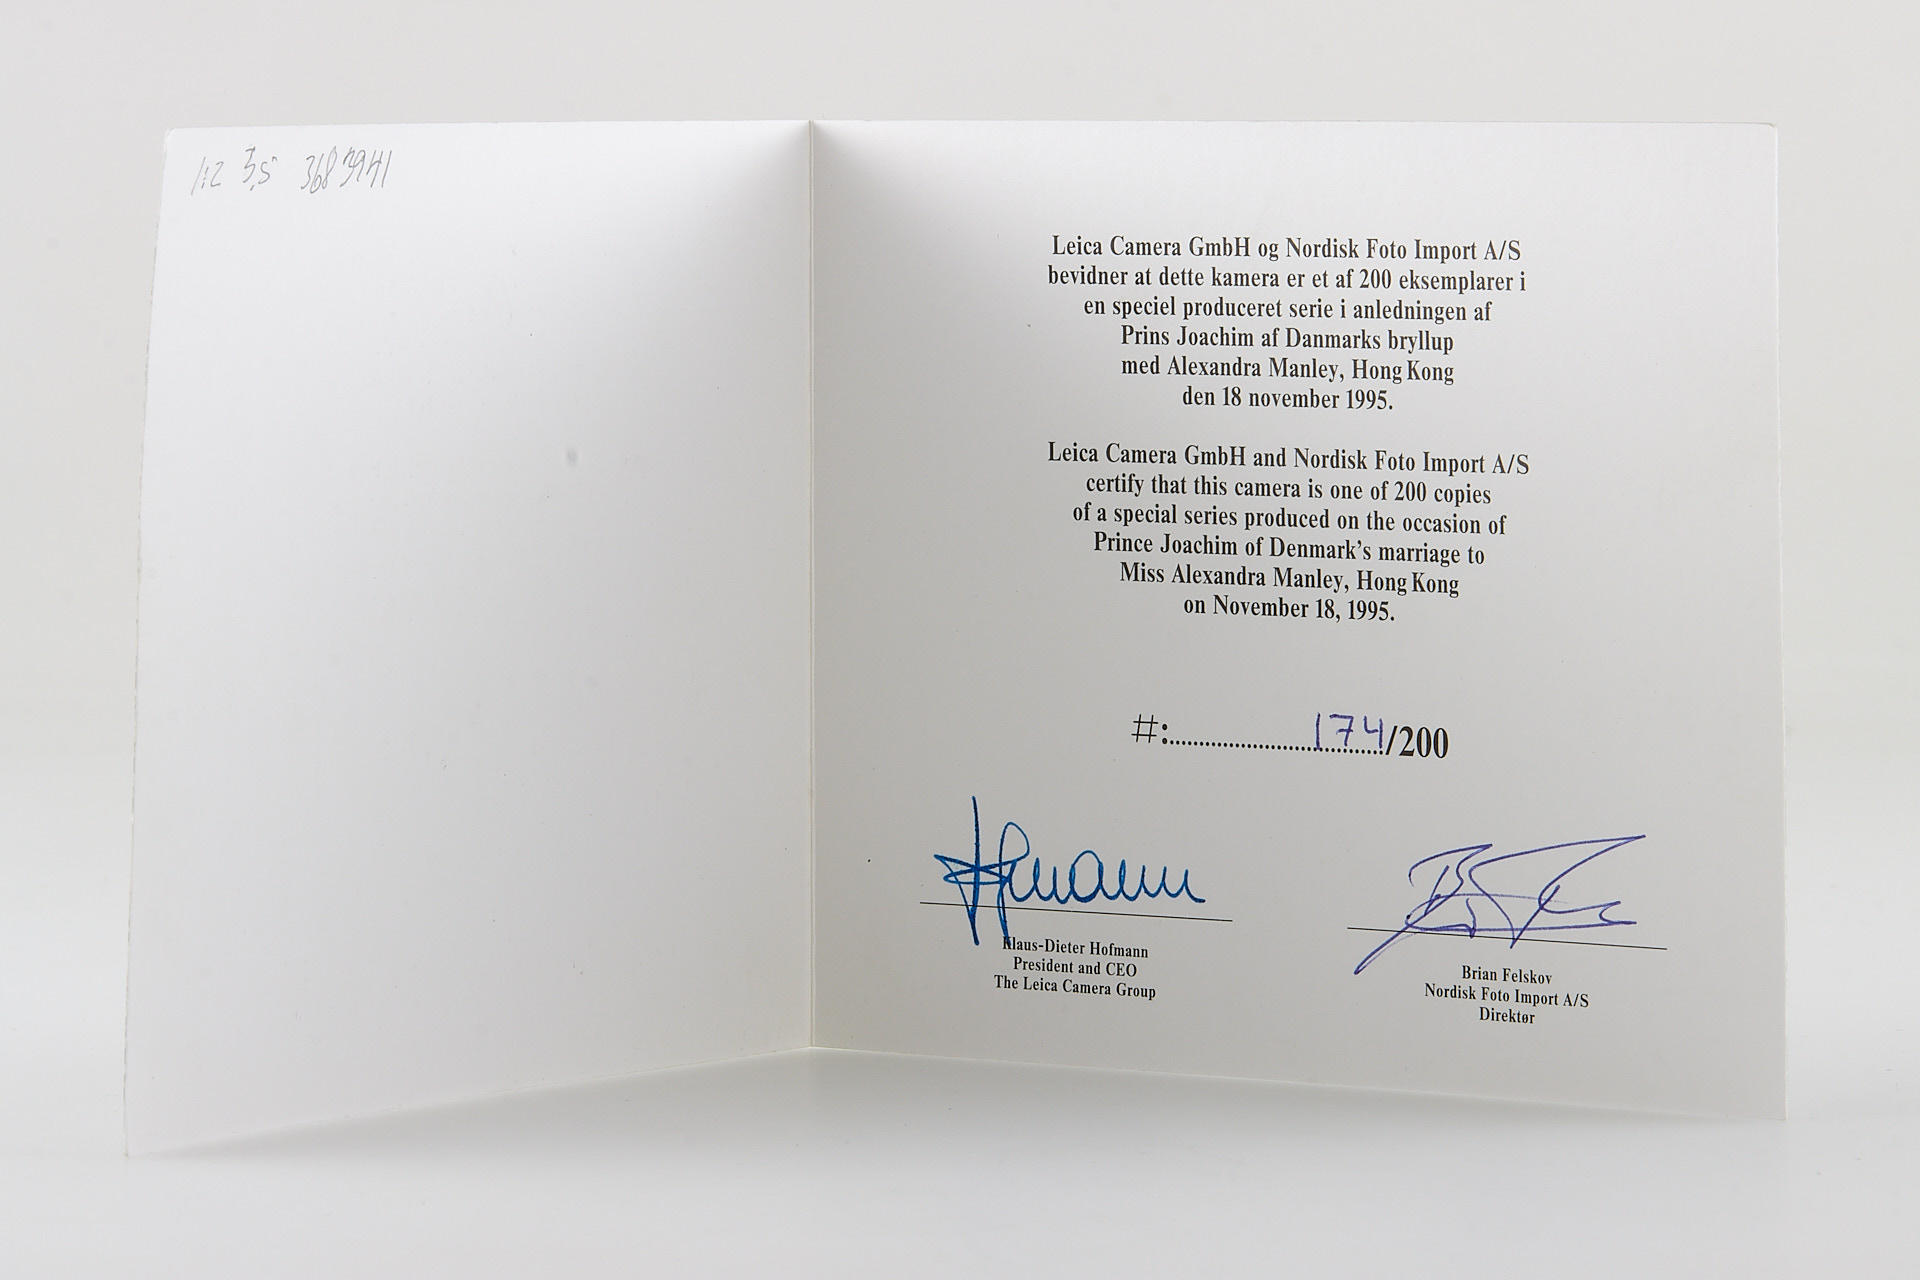 1:2 3,5 3683941
Leica Camera GmbH og Nordisk Foto Import A/S
bevidner at dette kamera er et af 200 eksemplarer i
en speciel produceret serie i anledningen af
Prins Joachim af Danmarks bryllup
med Alexandra Manley, Hong Kong
den 18 november 1995.
Leica Camera GmbH and Nordisk Foto Import A/S
certify that this camera is one of 200 copies
of a special series produced on the occasion of
Prince Joachim of Denmark's marriage to
Miss Alexandra Manley, Hong Kong
on November 18, 1995.
#:....................................174/200
Klaus-Dieter Hofmann
President and CEO
The Leica Camera Group
Brian Felskov
Nordisk Foto Import A/S
Direktør